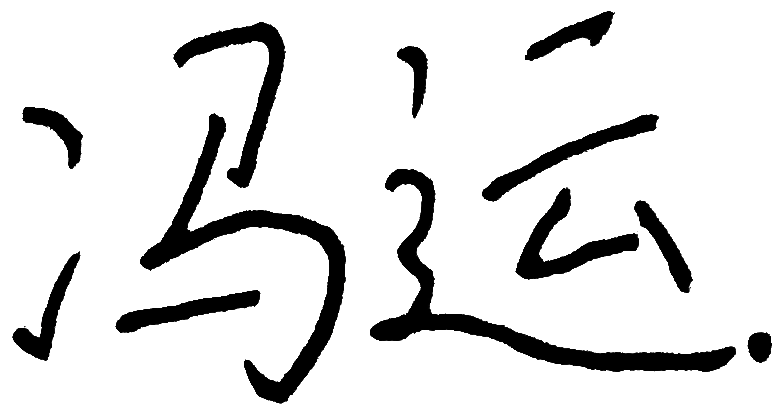 冯运.